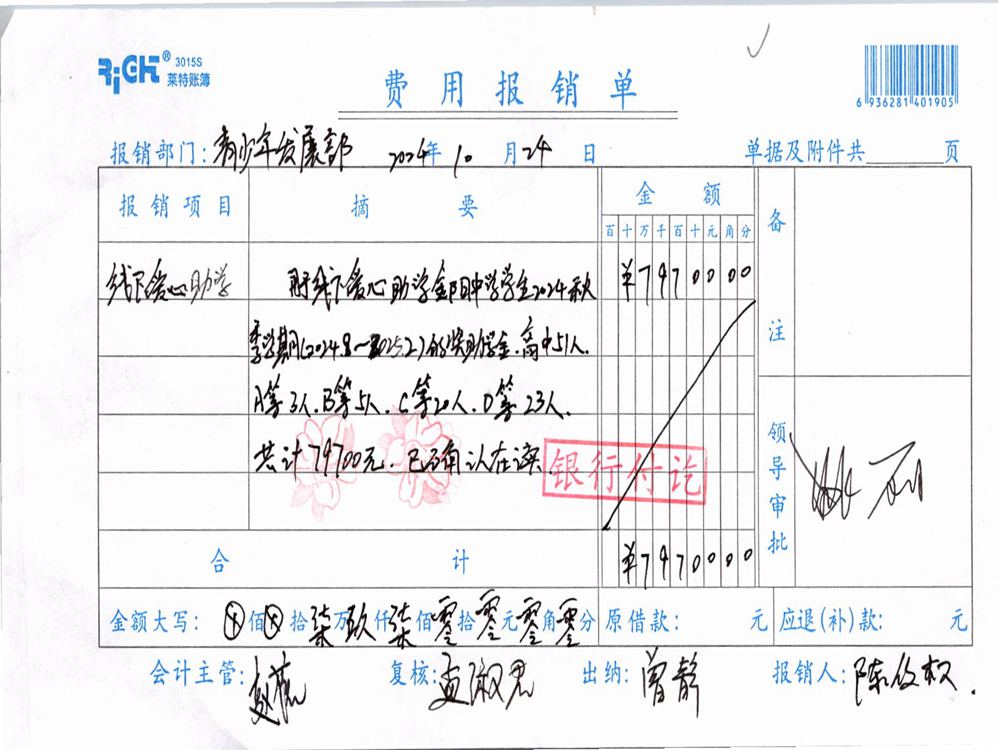 RiGHT® 3015S
莱特账簿
费用报销单
6 936281 401905
报销部门：青少年发展部 2024年10月24日 单据及附件共 页
报销项目 摘要 金额 备注
百十万千百十元角分
线下爱心助学 附线下爱心助学金阳中学学生2024秋 ¥7970000
季学期(2024.8～2025.2)的奖助学金.高中51人.
A等3人.B等5人.C等20人.D等23人.
共计79700元.已确认在读.
银行付讫
领导审批
合计 ¥7970000
金额大写：⊗佰⊗拾柒万玖仟柒佰零拾零元零角零分 原借款： 元 应退(补)款： 元
会计主管： 复核：孟淑君 出纳：曾静 报销人：陈俊权.